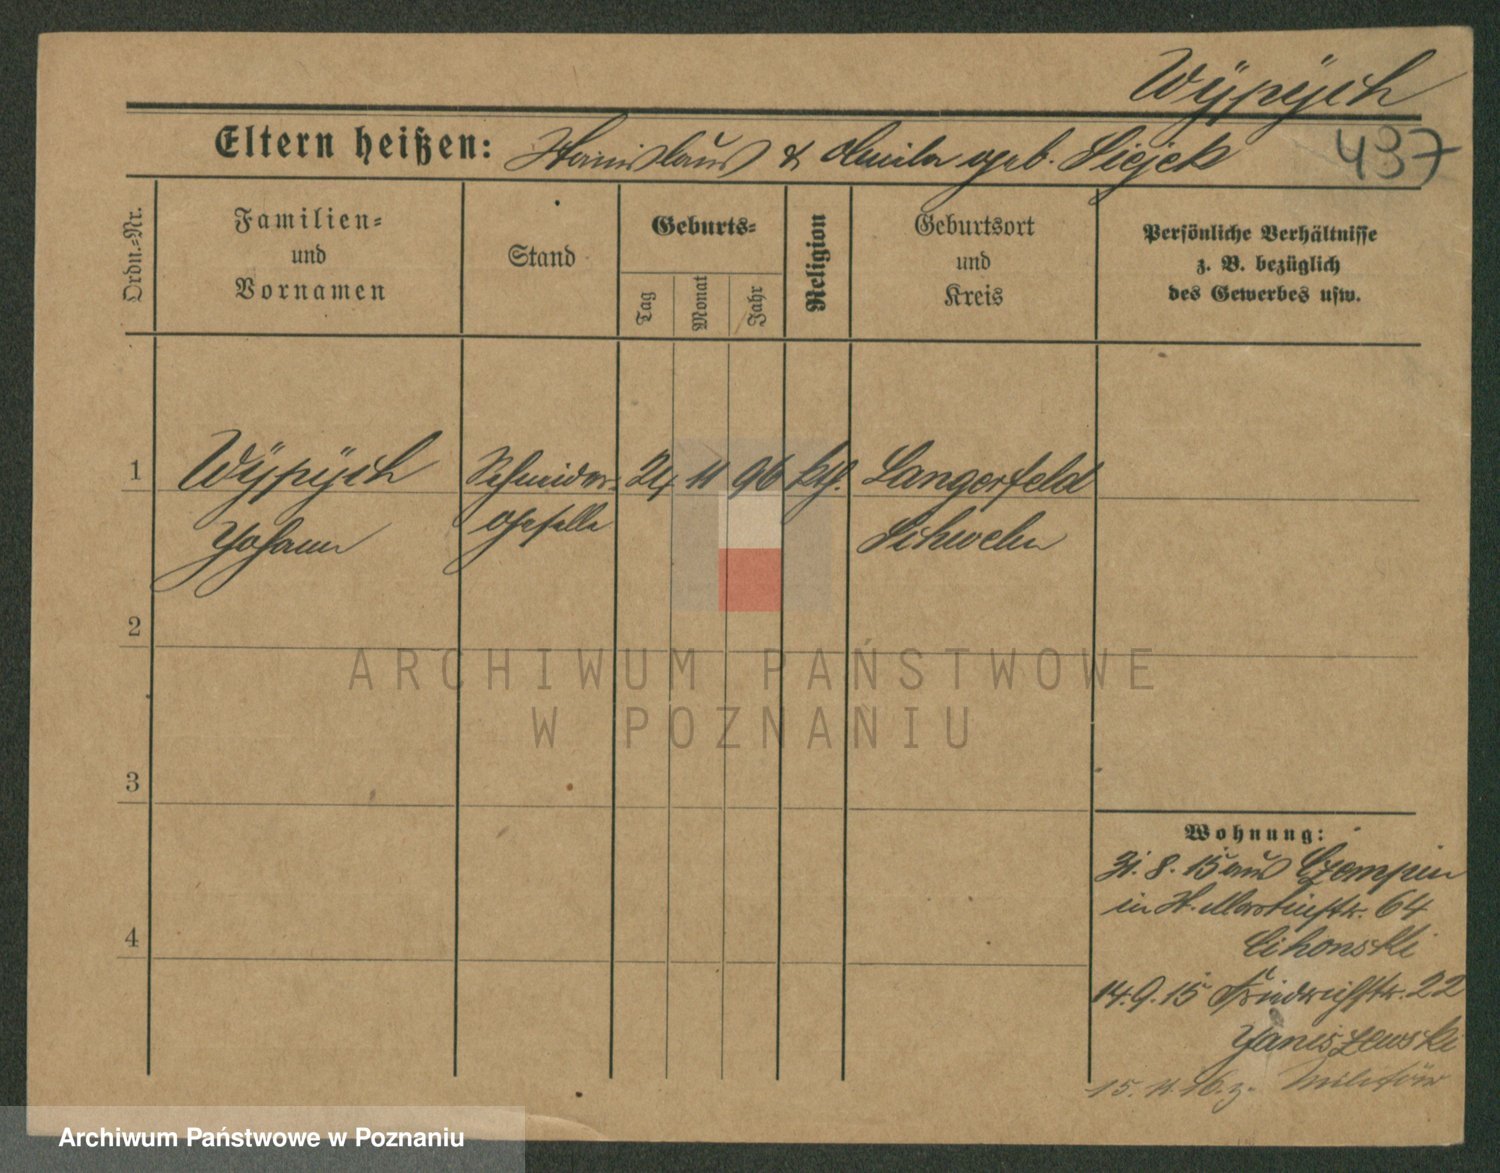 Wÿpÿch
Eltern heißen: Stanislaus & geb. Siejek
437
Ordn.=Nr.
Familien=
und
Vornamen
Stand
Geburts=
Tag
Monat
Jahr
Religion
Geburtsort
und
Kreis
Persönliche Verhältnisse
z. B. bezüglich
des Gewerbes usw.
1
Wÿpÿch
Johann
Schneider=
Geselle
24 11 96 kth.
Langerfeld
Schwelm
2
3
4
ARCHIWUM PAŃSTWOWE
W POZNANIU
Wohnung:
31. 8. 15 aus Czempin
in St. Martinstr. 64
Cichonski
14. 9. 15 Friedrichstr. 22
Janiszewski
15. 11. 16 z. Militär
Archiwum Państwowe w Poznaniu